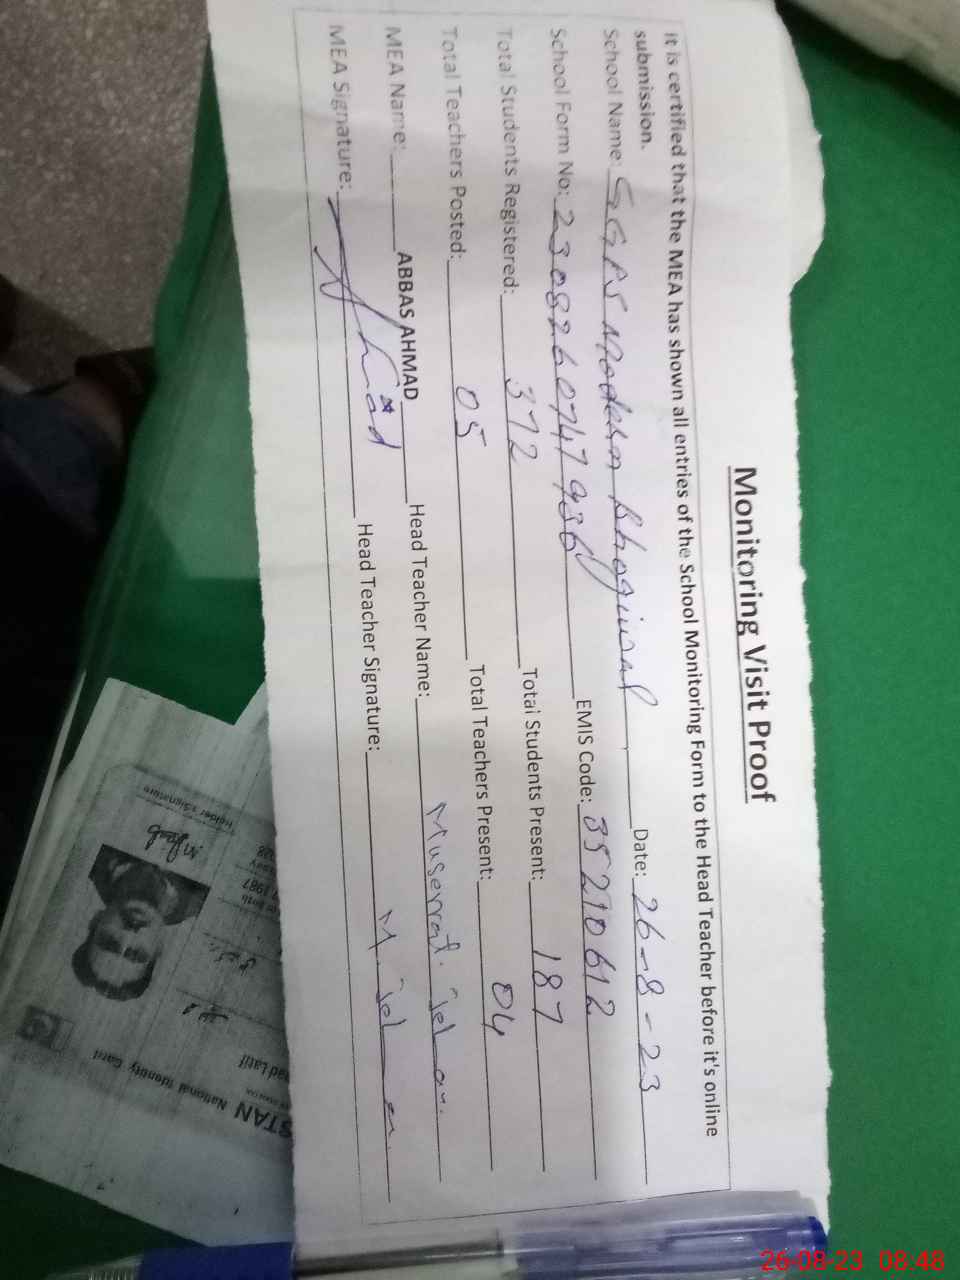 Monitoring Visit Proof
It is certified that the MEA has shown all entries of the School Monitoring Form to the Head Teacher before it's online
submission.
School Name: GGPS Modern Bhogiwal Date: 26-8-23
School Form No: 2308260747936 EMIS Code: 35210612
Total Students Registered: 372 Total Students Present: 187
Total Teachers Posted: 05 Total Teachers Present: 04
MEA Name: ABBAS AHMAD Head Teacher Name: Muserrat
MEA Signature: Head Teacher Signature:
STAN National Identity Card
ad Latif
1987
Holder's Signature
26-08-23 08:48